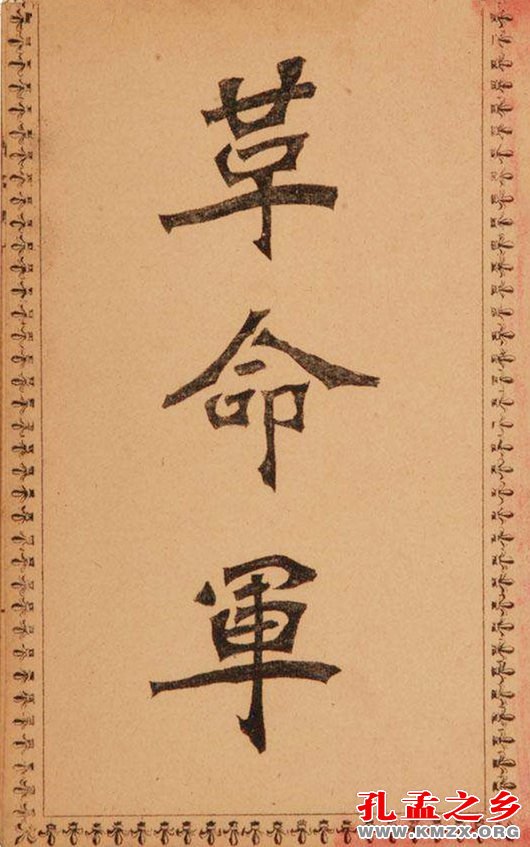 革命軍
孔孟之乡
WWW.KMZX.ORG